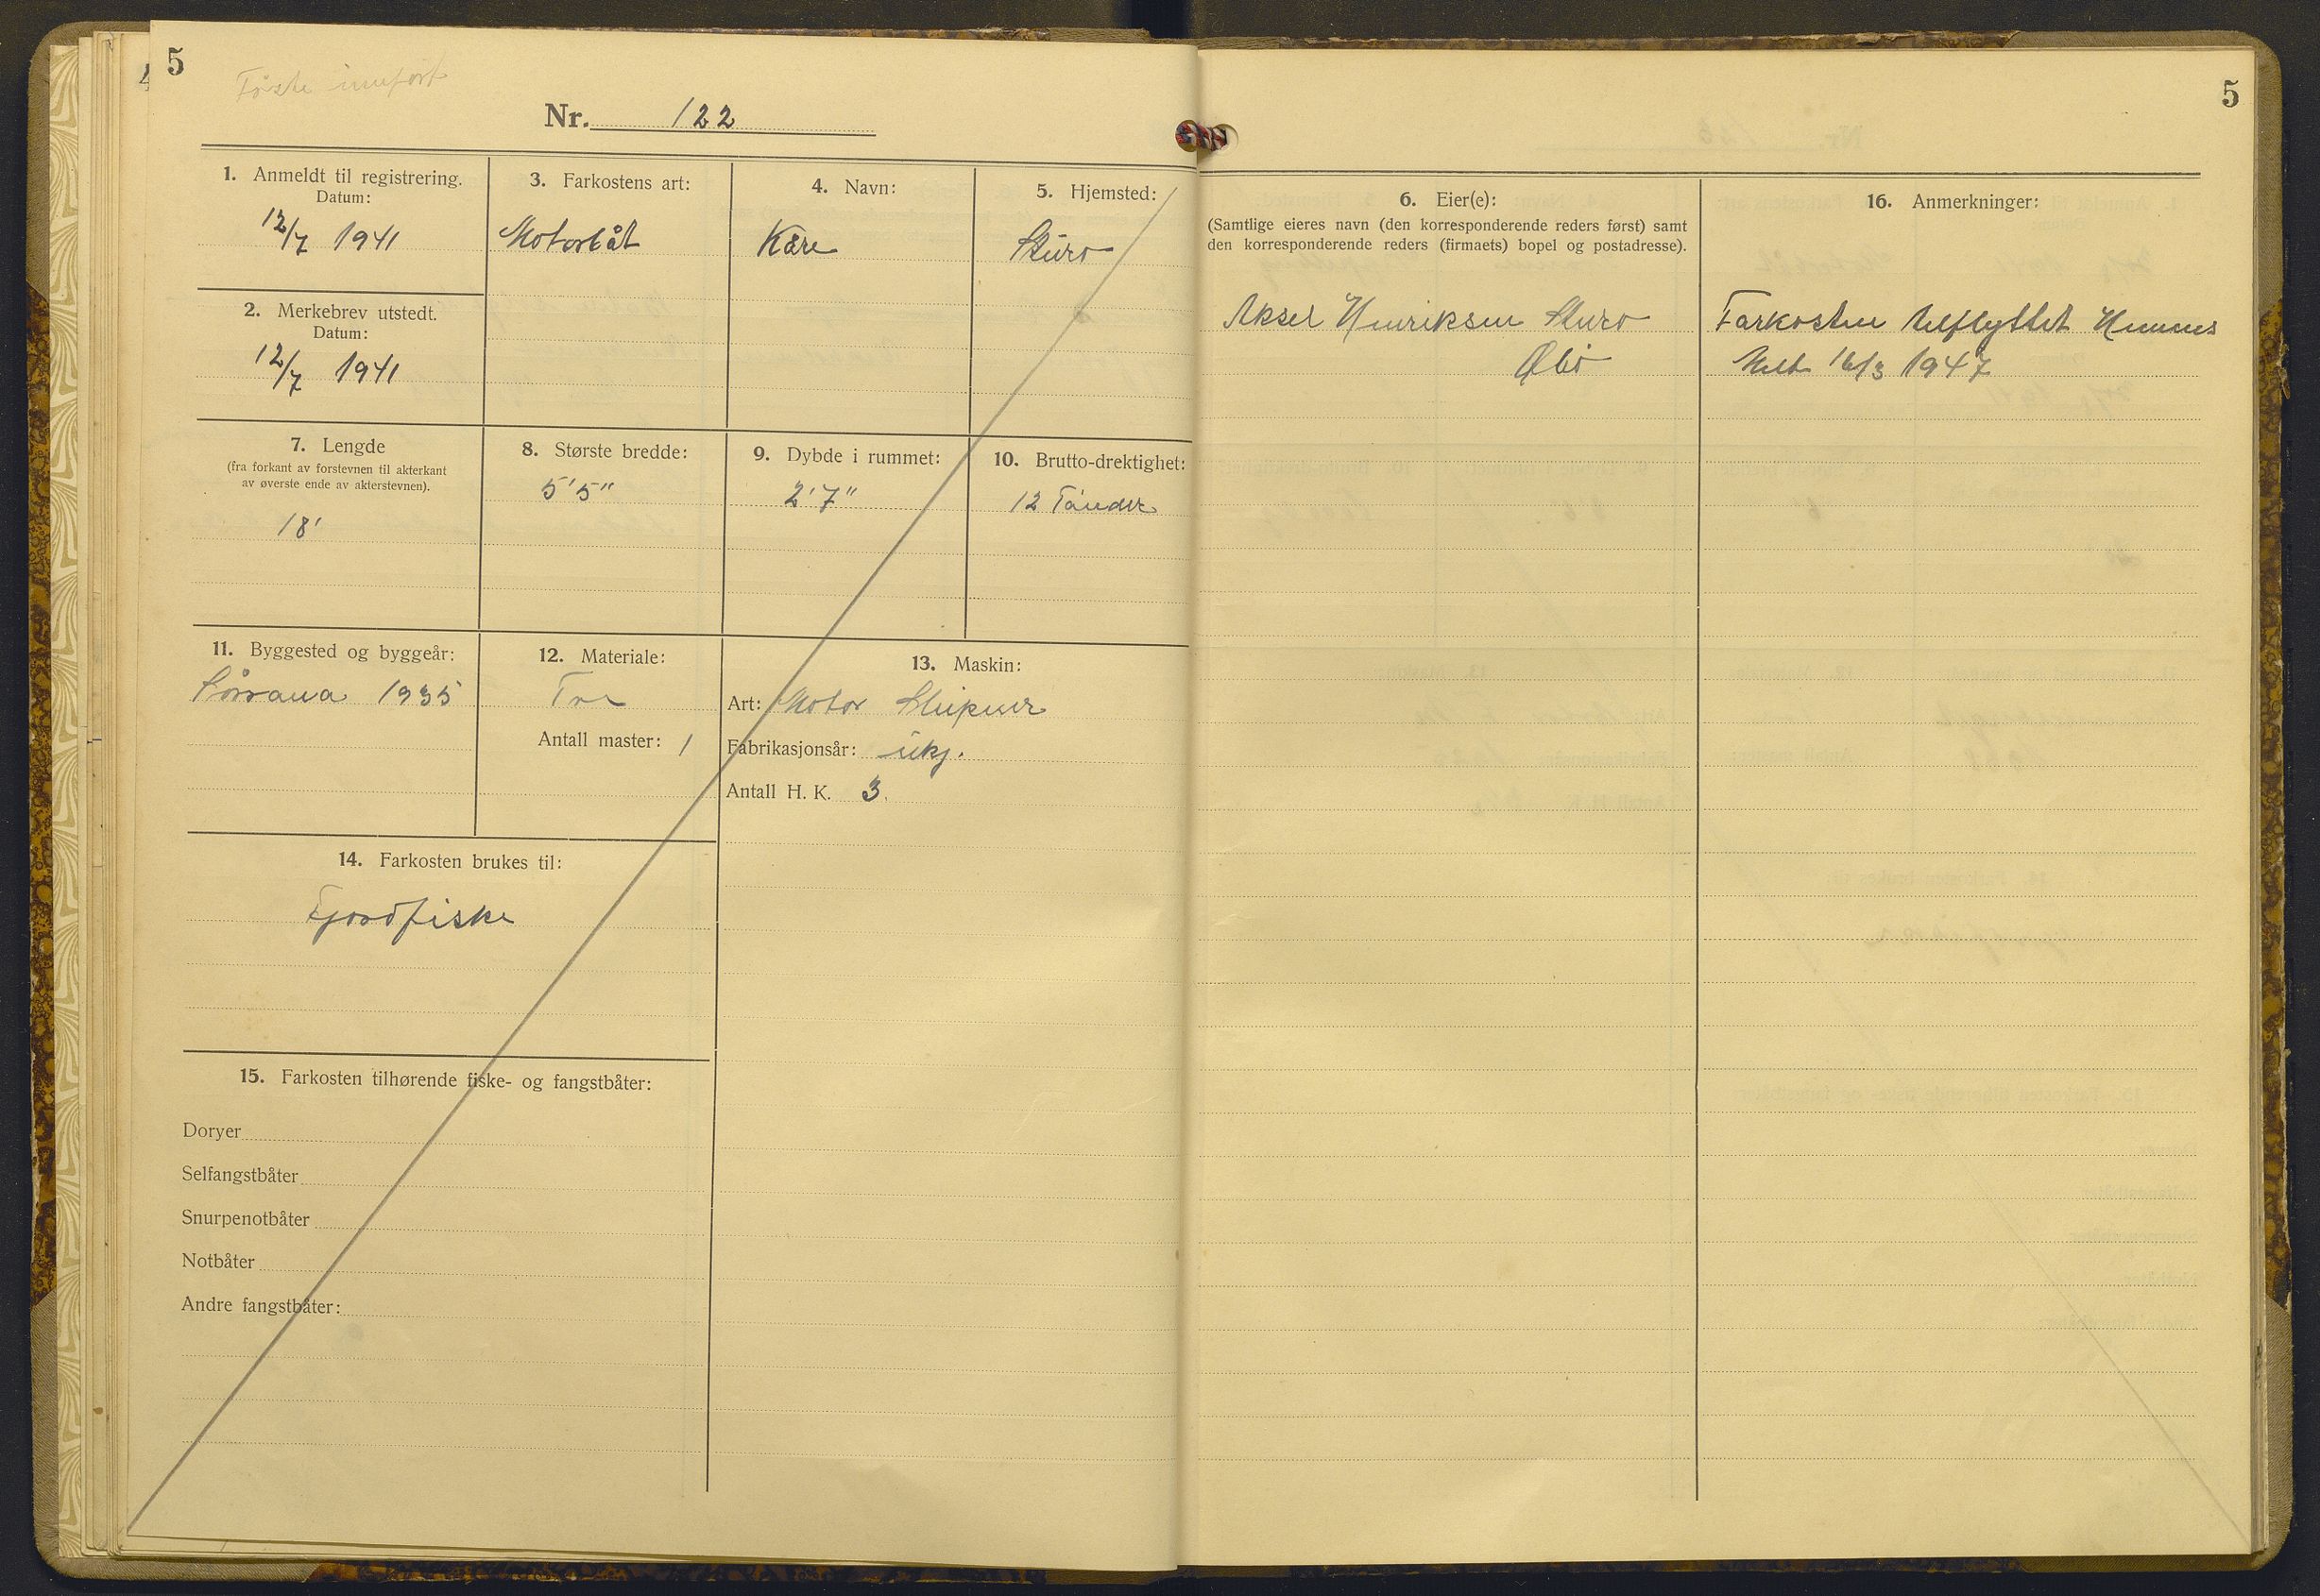 5
Nr. 122
1. Anmeldt til registrering.
Datum:
12/7 1941
2. Merkebrev utstedt.
Datum:
12/7 1941
3. Farkostens art:
Motorbåt
4. Navn:
Kåre
5. Hjemsted:
7. Lengde
(fra forkant av forstevnen til akterkant
av øverste ende av akterstevnen).
18'
8. Største bredde:
5'5"
9. Dybde i rummet:
2'7"
10. Brutto-drektighet:
12 Tønder
11. Byggested og byggeår:
Sörrana 1935
12. Materiale:
Tre
Antall master: 1
13. Maskin:
Art: Motor
Fabrikasjonsår: ukj.
Antall H. K. 3.
14. Farkosten brukes til:
Fjordfiske
15. Farkosten tilhørende fiske- og fangstbåter:
Doryer
Selfangstbåter
Snurpenotbåter
Notbåter
Andre fangstbåter:
5
6. Eier(e):
(Samtlige eieres navn (den korresponderende reders først) samt
den korresponderende reders (firmaets) bopel og postadresse).
Aksel Henriksen
16. Anmerkninger:
Farkosten Hemnes
16/3 1947